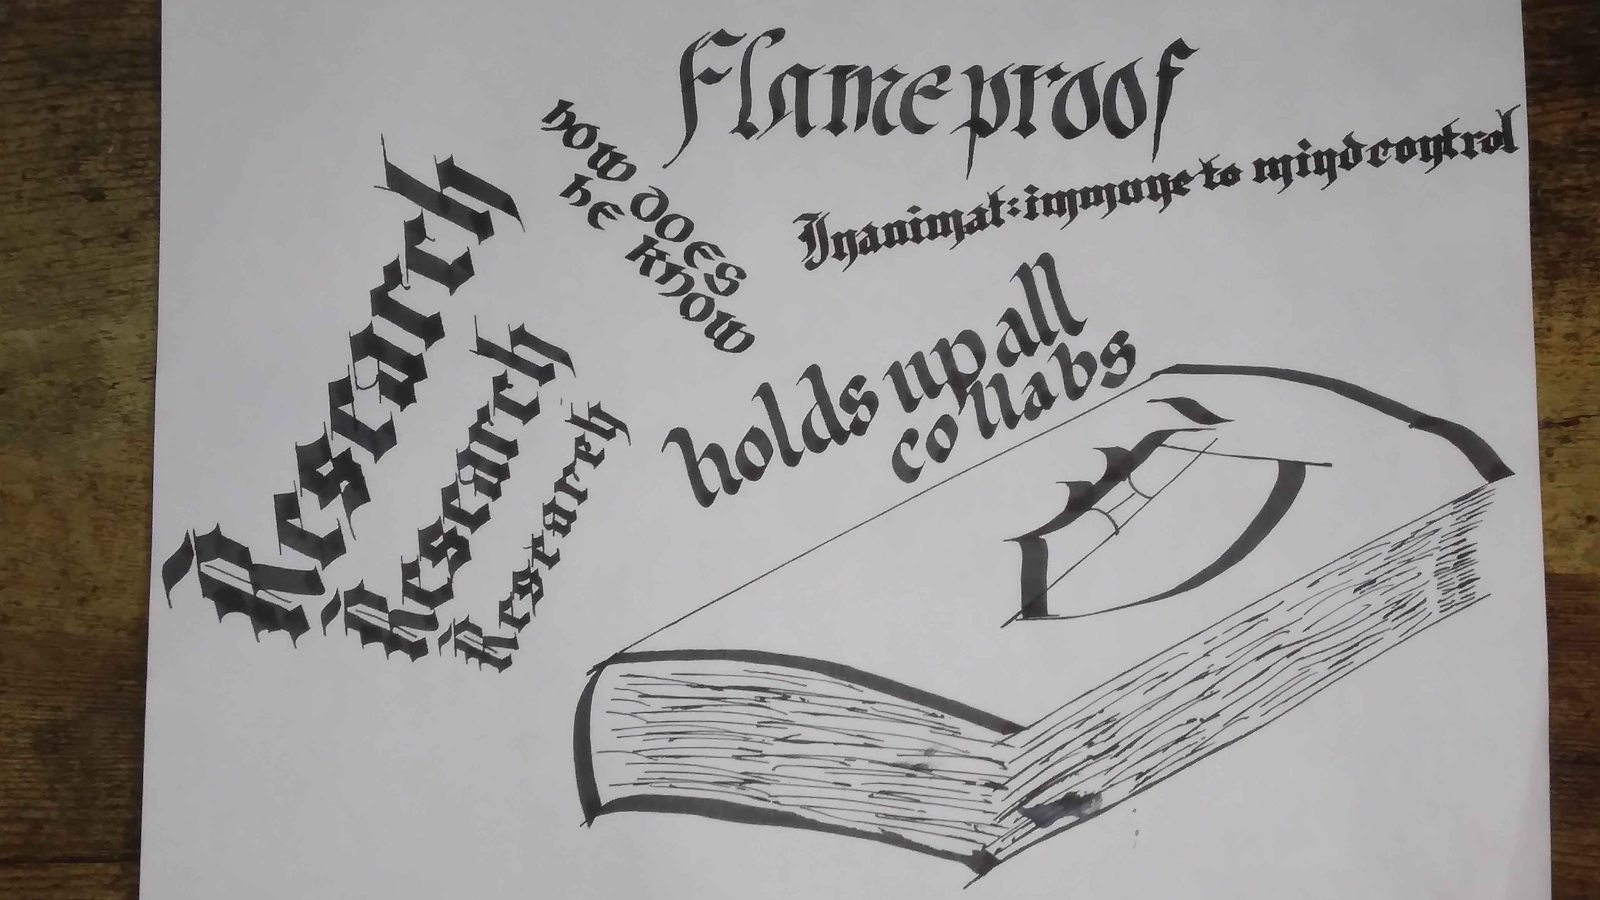 Flameproof
how does
he know
Inanimat: immune to mindcontrol
holds up all
collabs
Research
Research
Research
D